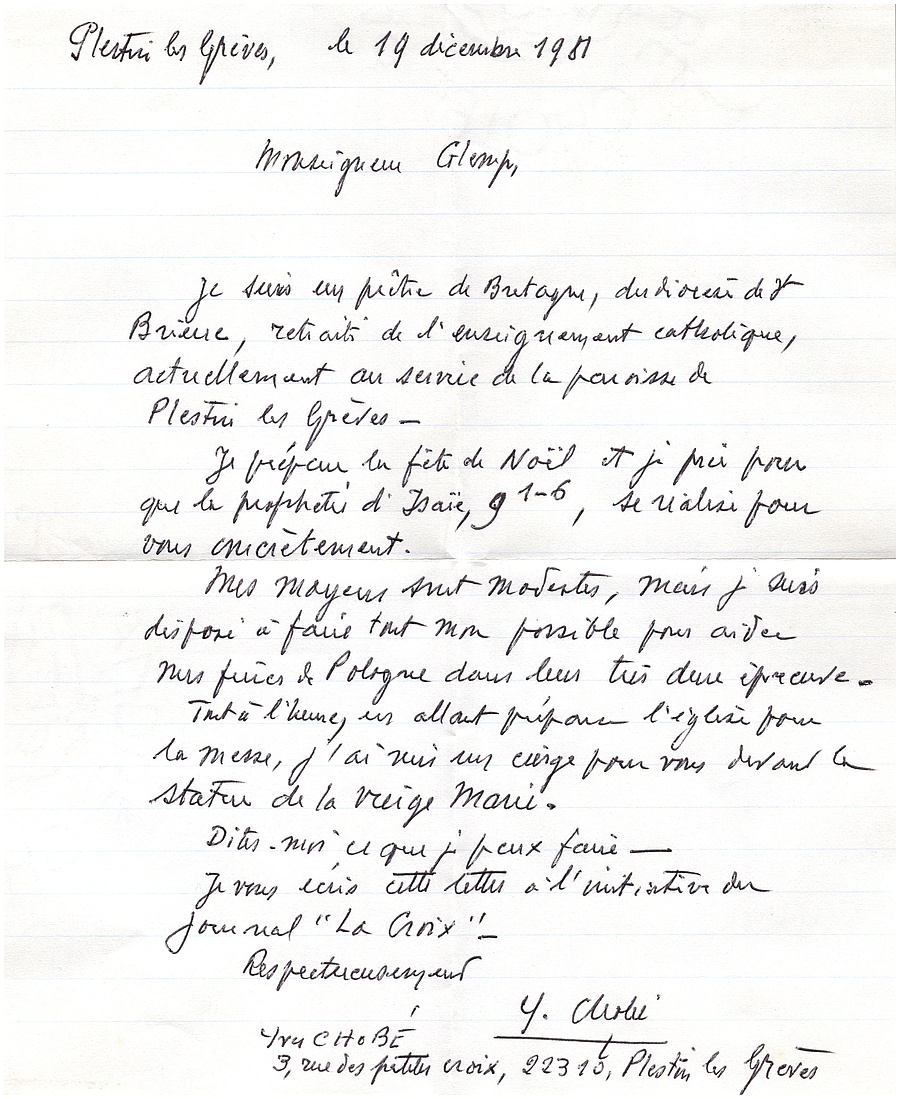 Plestin les Grèves, le 19 décembre 1981
Monseigneur Glemp,
Je suis un prêtre de Bretagne, du diocèse de St
Brieuc, retraité de l'enseignement catholique,
actuellement au service de la paroisse de
Plestin les Grèves –
Je prépare la fête de Noël et je prie pour
que la prophétie d'Isaïe, 9 1-6, se réalise pour
vous concrètement.
Mes moyens sont modestes, mais je suis
disposé à faire tout mon possible pour aider
nos frères de Pologne dans leur très dure épreuve.
Tout à l'heure, en allant préparer l'église pour
la messe, j'ai mis un cierge pour vous devant la
statue de la Vierge Marie.
Dites-moi ce que je peux faire —
Je vous écris cette lettre à l'initiative du
journal "La Croix" –
Respectueusement
Y. Chobé
Yves CHOBÉ
3, rue des petites croix, 22310, Plestin les Grèves